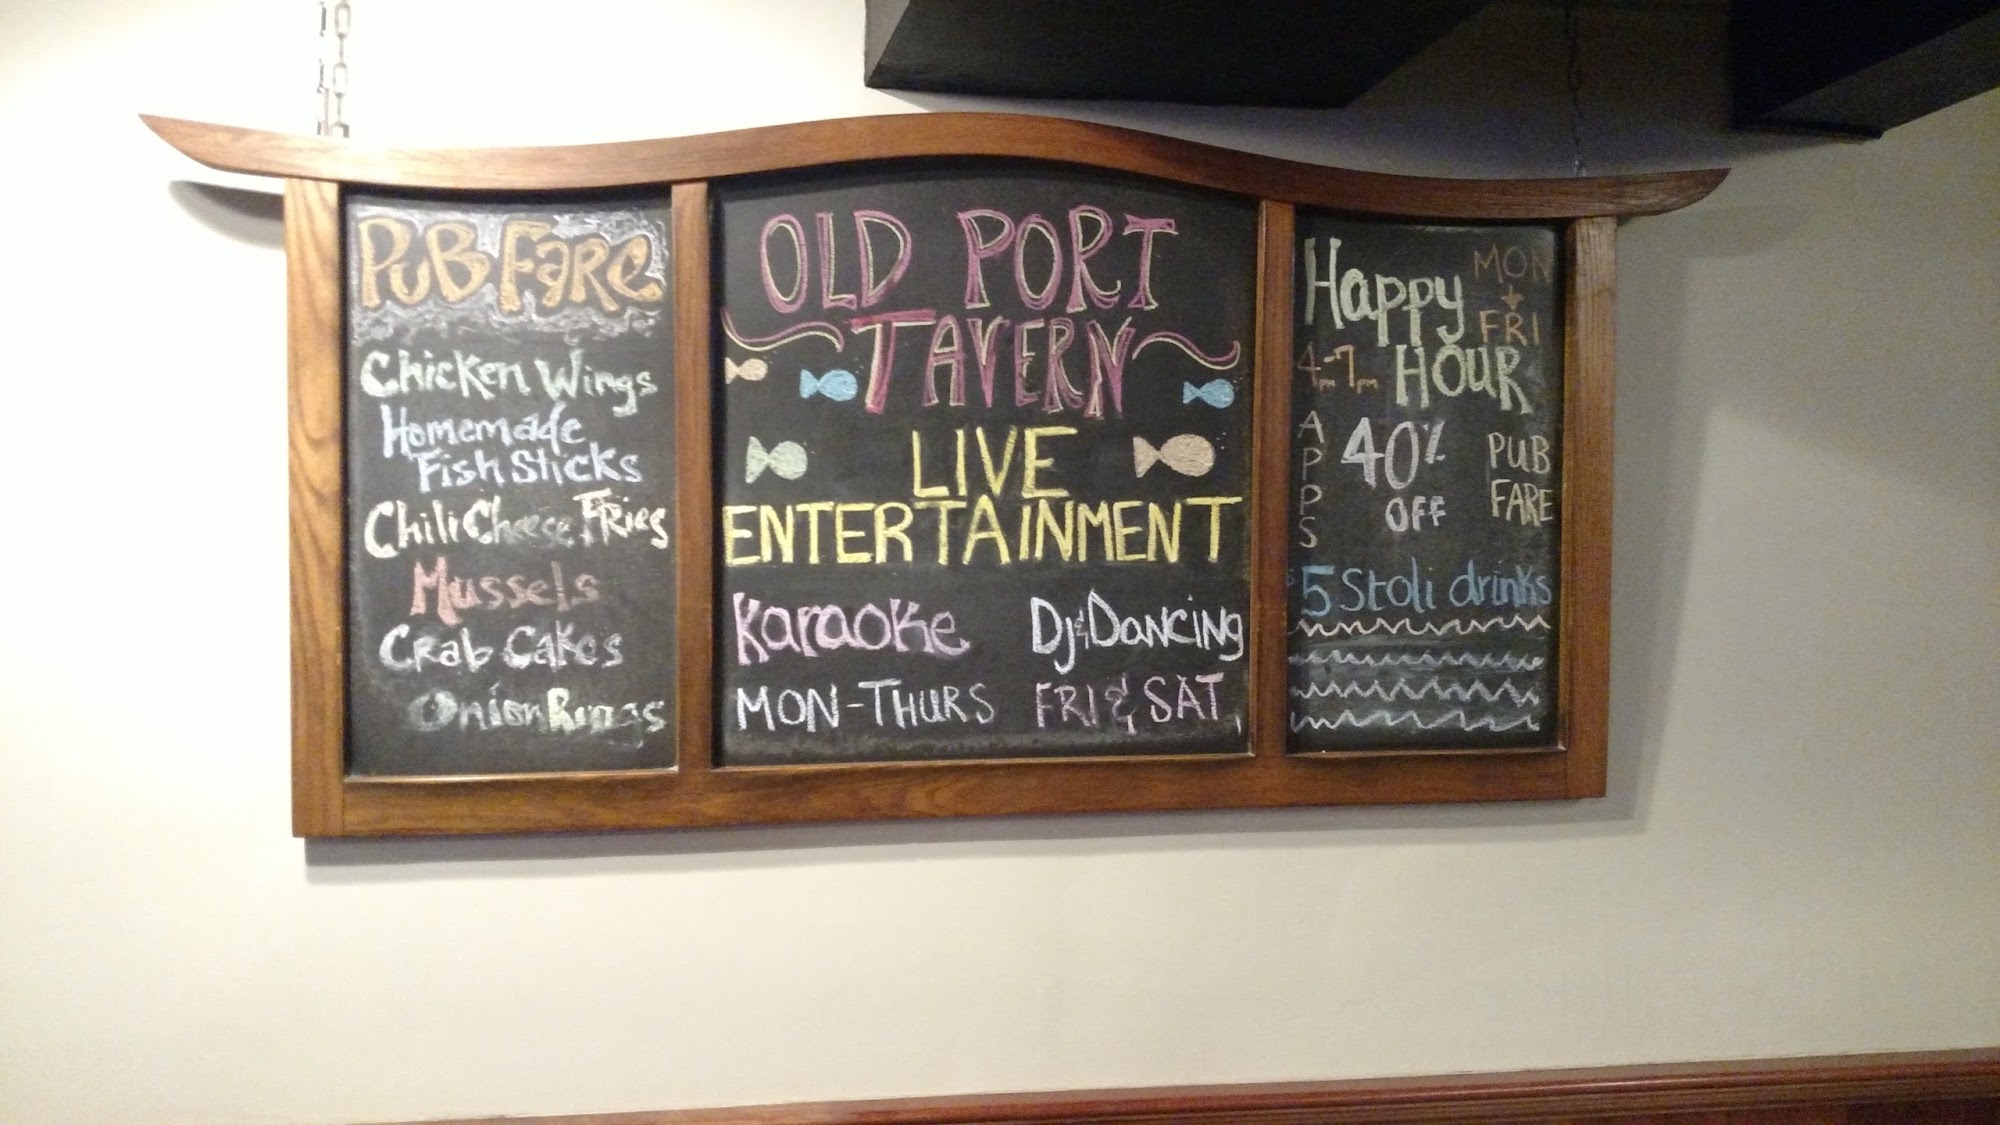 PUB Fare
Chicken Wings
Homemade
Fish Sticks
Chili Cheese Fries
Mussels
Crab Cakes
Onion Rings
OLD PORT
TAVERN
LIVE
ENTERTAINMENT
Karaoke
MON-THURS
Dj & Dancing
FRI & SAT
Happy
HOUR
MON
+
FRI
4pm-7pm
APPS
40%
OFF
PUB
FARE
$5 Stoli drinks